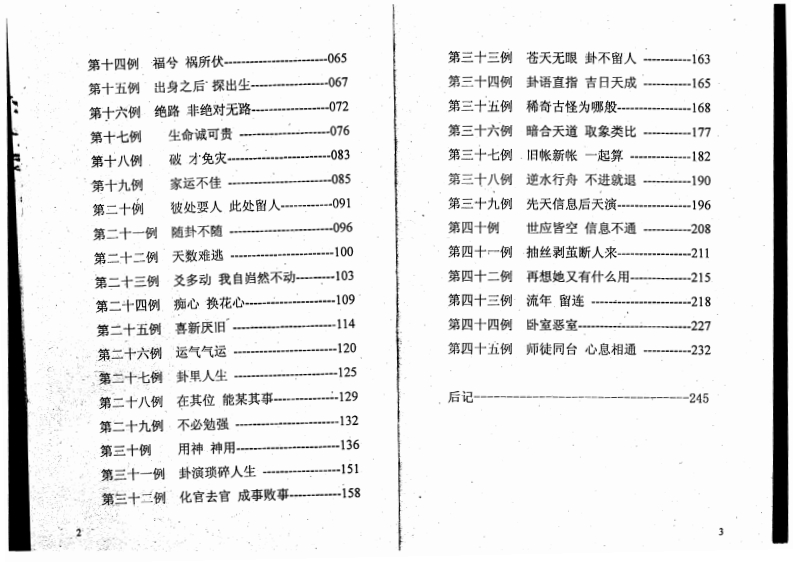 第十四例 福兮 祸所伏-----------------------065
第十五例 出身之后 探出生-----------------067
第十六例 绝路 非绝对无路-----------------072
第十七例 生命诚可贵 --------------------076
第十八例 破 才免灾-----------------------083
第十九例 家运不佳 -----------------------085
第二十例 彼处要人 此处留人------------091
第二十一例 随卦不随 --------------------096
第二十二例 天数难逃 --------------------100
第二十三例 爻多动 我自当然不动---------103
第二十四例 痴心 换花心------------------109
第二十五例 喜新厌旧 --------------------114
第二十六例 运气气运 --------------------120
第二十七例 卦里人生 --------------------125
第二十八例 在其位 能某其事--------------129
第二十九例 不必勉强 --------------------132
第三十例 用神 神用-----------------------136
第三十一例 卦演琐碎人生 ----------------151
第三十二例 化官去官 成事败事------------158
2
第三十三例 苍天无眼 卦不留人 -----------163
第三十四例 卦语直指 吉日天成 -----------165
第三十五例 稀奇古怪为哪般----------------168
第三十六例 暗合天道 取象类比 -----------177
第三十七例 旧帐新帐 一起算 --------------182
第三十八例 逆水行舟 不进就退 -----------190
第三十九例 先天信息后天演----------------196
第四十例 世应皆空 信息不通 -----------208
第四十一例 抽丝剥茧断人来----------------211
第四十二例 再想她又有什么用-------------215
第四十三例 流年 留连 --------------------218
第四十四例 卧室恶室-----------------------227
第四十五例 师徒同台 心息相通 -----------232
后记---------------------------------245
3